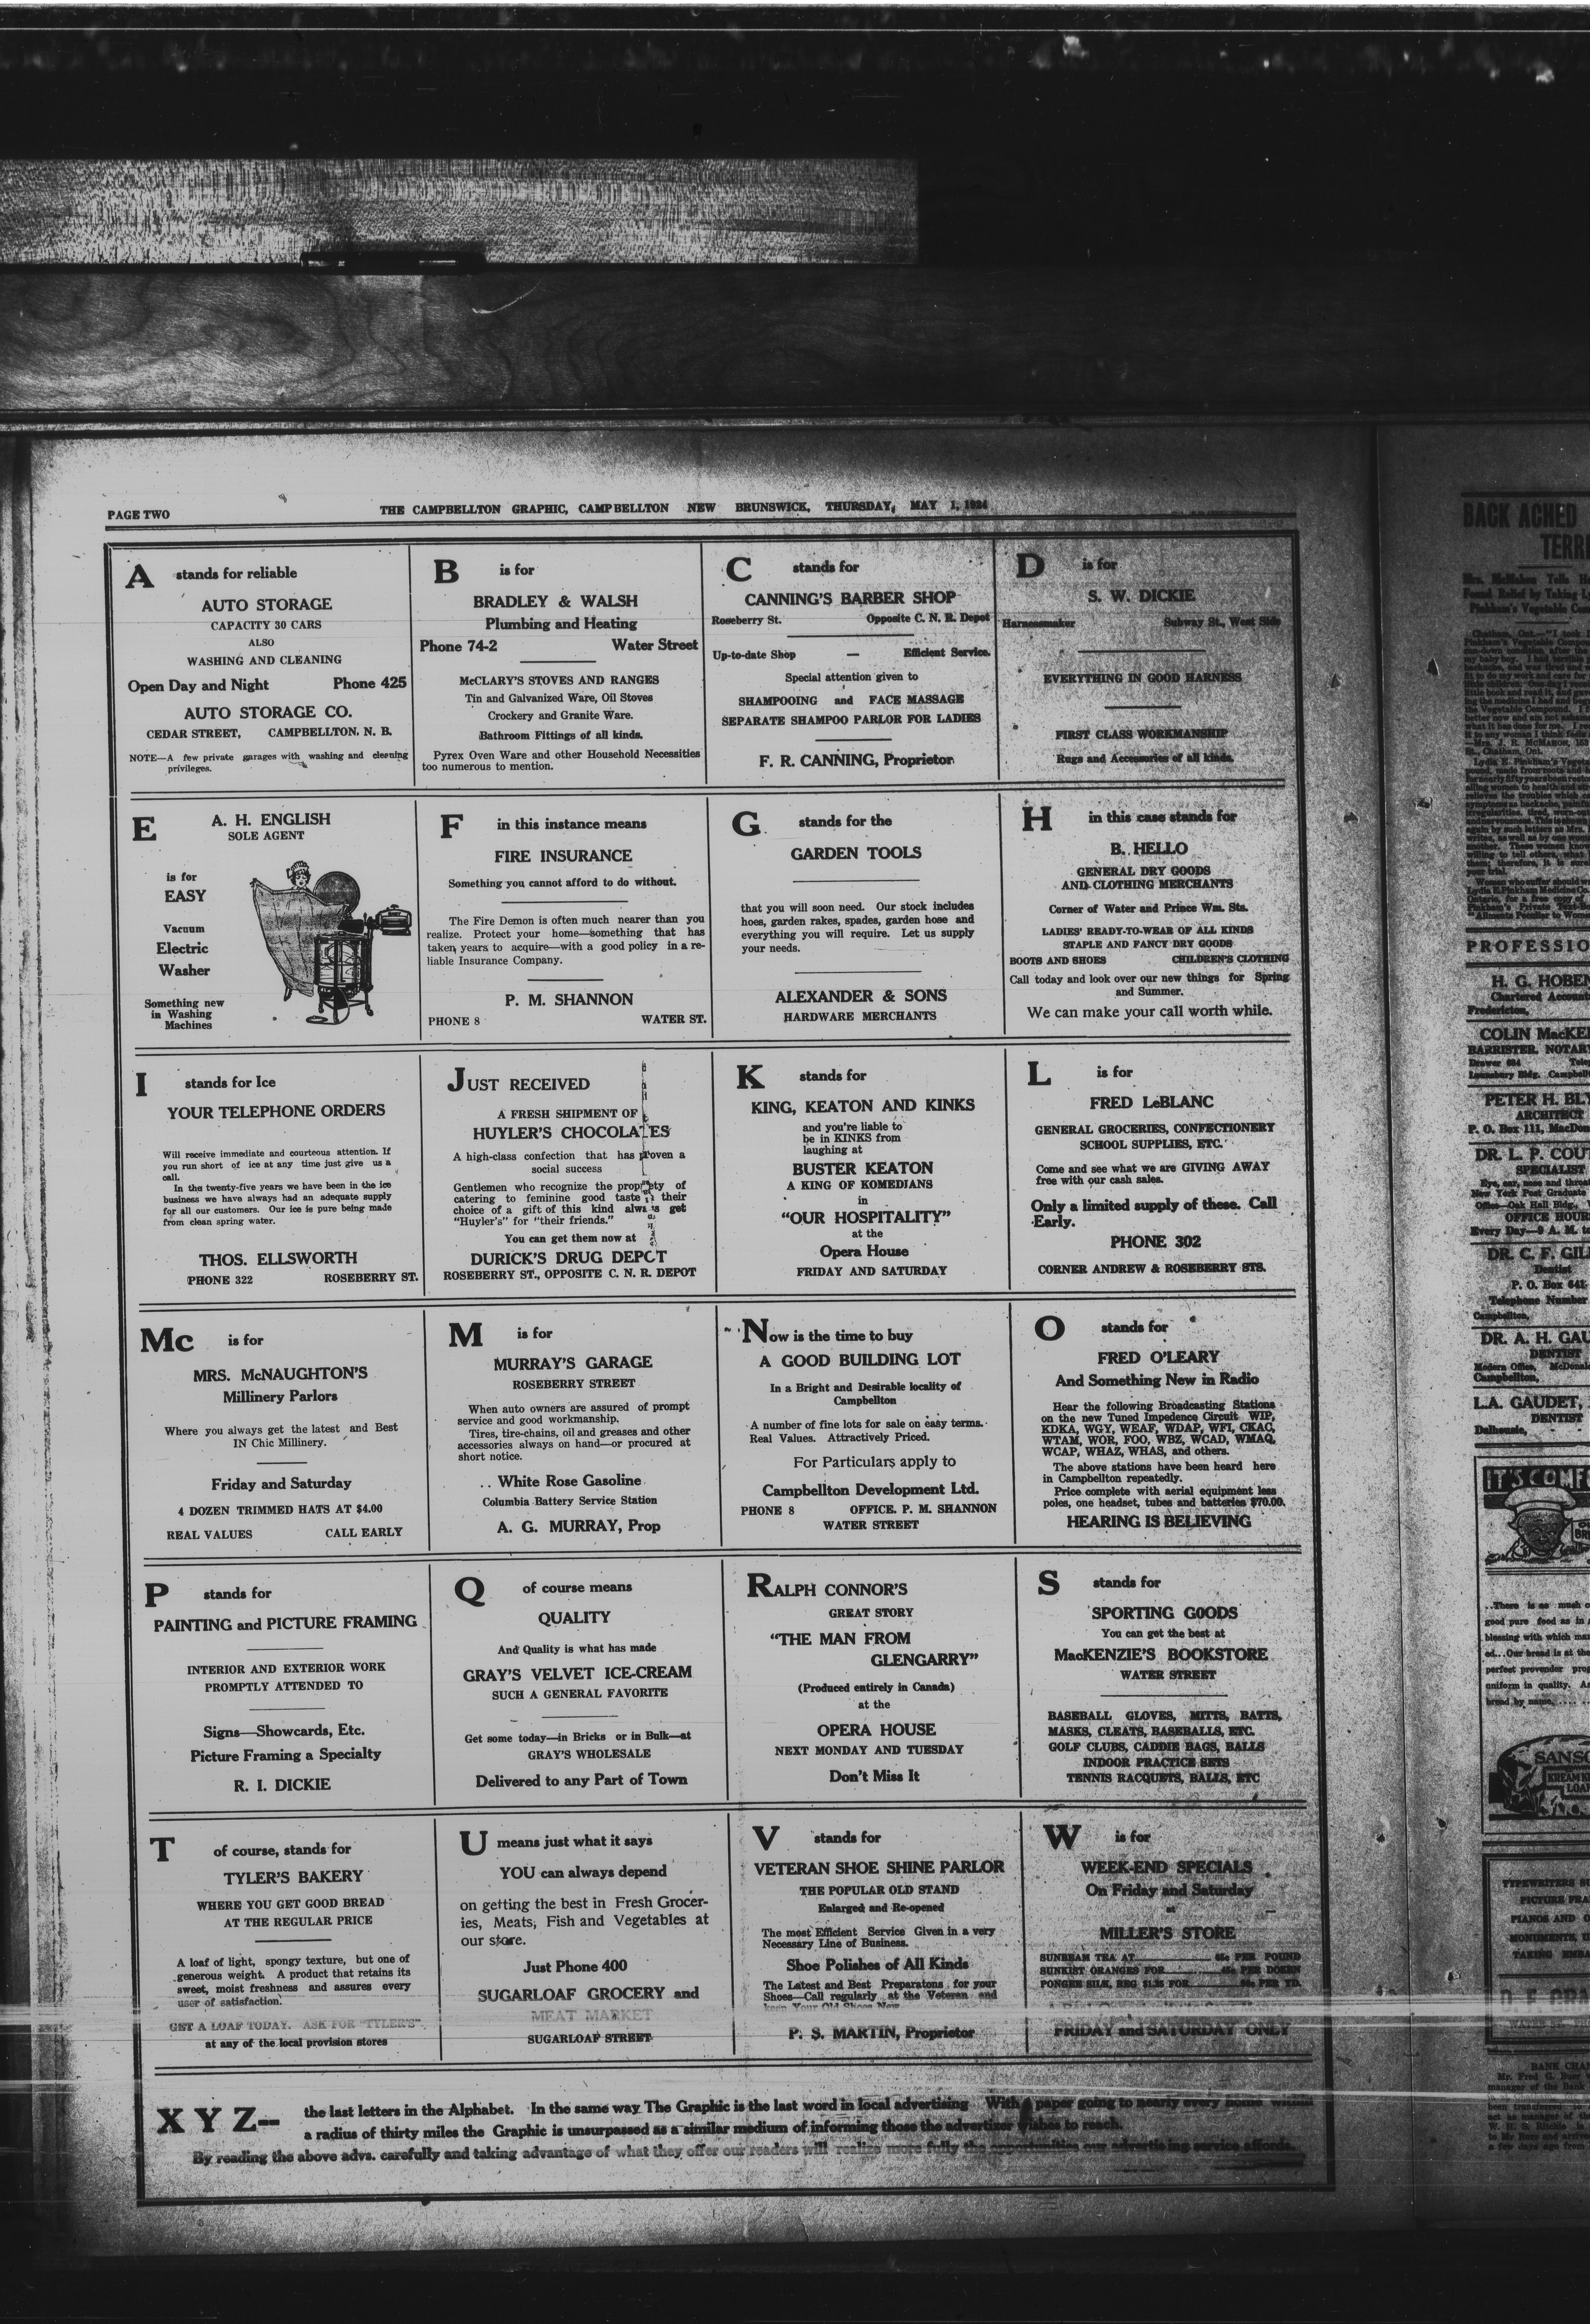 PAGE TWO
THE CAMPBELLTON GRAPHIC, CAMPBELLTON NEW BRUNSWICK, THURSDAY, MAY 1, 1924
A stands for reliable
AUTO STORAGE
CAPACITY 30 CARS
ALSO
WASHING AND CLEANING
Open Day and Night Phone 425
AUTO STORAGE CO.
CEDAR STREET, CAMPBELLTON, N. B.
NOTE—A few private garages with washing and cleening
privileges.
B is for
BRADLEY & WALSH
Plumbing and Heating
Phone 74-2 Water Street
McCLARY'S STOVES AND RANGES
Tin and Galvanized Ware, Oil Stoves
Crockery and Granite Ware.
Bathroom Fittings of all kinds.
Pyrex Oven Ware and other Household Necessities
too numerous to mention.
C stands for
CANNING'S BARBER SHOP
Roseberry St. Opposite C. N. R. Depot
Up-to-date Shop — Efficient Service.
Special attention given to
SHAMPOOING and FACE MASSAGE
SEPARATE SHAMPOO PARLOR FOR LADIES
F. R. CANNING, Proprietor
D is for
S. W. DICKIE
Harnessmaker Subway St., West Side
EVERYTHING IN GOOD HARNESS
FIRST CLASS WORKMANSHIP
Rugs and Accessories of all kinds.
E A. H. ENGLISH
SOLE AGENT
is for
EASY
Vacuum
Electric
Washer
Something new
in Washing
Machines
F in this instance means
FIRE INSURANCE
Something you cannot afford to do without.
The Fire Demon is often much nearer than you
realize. Protect your home—something that has
taken years to acquire—with a good policy in a re-
liable Insurance Company.
P. M. SHANNON
PHONE 8 WATER ST.
G stands for the
GARDEN TOOLS
that you will soon need. Our stock includes
hoes, garden rakes, spades, garden hose and
everything you will require. Let us supply
your needs.
ALEXANDER & SONS
HARDWARE MERCHANTS
H in this case stands for
B. HELLO
GENERAL DRY GOODS
AND CLOTHING MERCHANTS
Corner of Water and Prince Wm. Sts.
LADIES' READY-TO-WEAR OF ALL KINDS
STAPLE AND FANCY DRY GOODS
BOOTS AND SHOES CHILDREN'S CLOTHING
Call today and look over our new things for Spring
and Summer.
We can make your call worth while.
I stands for Ice
YOUR TELEPHONE ORDERS
Will receive immediate and courteous attention. If
you run short of ice at any time just give us a
call.
In the twenty-five years we have been in the ice
business we have always had an adequate supply
for all our customers. Our ice is pure being made
from clean spring water.
THOS. ELLSWORTH
PHONE 322 ROSEBERRY ST.
JUST RECEIVED
A FRESH SHIPMENT OF
HUYLER'S CHOCOLATES
A high-class confection that has proven a
social success
Gentlemen who recognize the propriety of
catering to feminine good taste in their
choice of a gift of this kind always get
"Huyler's" for "their friends."
You can get them now at
DURICK'S DRUG DEPOT
ROSEBERRY ST., OPPOSITE C. N. R. DEPOT
K stands for
KING, KEATON AND KINKS
and you're liable to
be in KINKS from
laughing at
BUSTER KEATON
A KING OF KOMEDIANS
in
"OUR HOSPITALITY"
at the
Opera House
FRIDAY AND SATURDAY
L is for
FRED LeBLANC
GENERAL GROCERIES, CONFECTIONERY
SCHOOL SUPPLIES, ETC.
Come and see what we are GIVING AWAY
free with our cash sales.
Only a limited supply of these. Call
Early.
PHONE 302
CORNER ANDREW & ROSEBERRY STS.
Mc is for
MRS. McNAUGHTON'S
Millinery Parlors
Where you always get the latest and Best
IN Chic Millinery.
Friday and Saturday
4 DOZEN TRIMMED HATS AT $4.00
REAL VALUES CALL EARLY
M is for
MURRAY'S GARAGE
ROSEBERRY STREET
When auto owners are assured of prompt
service and good workmanship.
Tires, tire-chains, oil and greases and other
accessories always on hand—or procured at
short notice.
White Rose Gasoline
Columbia Battery Service Station
A. G. MURRAY, Prop
Now is the time to buy
A GOOD BUILDING LOT
In a Bright and Desirable locality of
Campbellton
A number of fine lots for sale on easy terms.
Real Values. Attractively Priced.
For Particulars apply to
Campbellton Development Ltd.
PHONE 8 OFFICE. P. M. SHANNON
WATER STREET
O stands for
FRED O'LEARY
And Something New in Radio
Hear the following Broadcasting Stations
on the new Tuned Impedence Circuit WIP,
KDKA, WGY, WEAF, WDAP, WFI, CKAC,
WTAM, WOR, FOO, WBZ, WCAD, WMAQ,
WCAP, WHAZ, WHAS, and others.
The above stations have been heard here
in Campbellton repeatedly.
Price complete with aerial equipment less
poles, one headset, tubes and batteries $70.00.
HEARING IS BELIEVING
P stands for
PAINTING and PICTURE FRAMING
INTERIOR AND EXTERIOR WORK
PROMPTLY ATTENDED TO
Signs—Showcards, Etc.
Picture Framing a Specialty
R. I. DICKIE
Q of course means
QUALITY
And Quality is what has made
GRAY'S VELVET ICE-CREAM
SUCH A GENERAL FAVORITE
Get some today—in Bricks or in Bulk—at
GRAY'S WHOLESALE
Delivered to any Part of Town
RALPH CONNOR'S
GREAT STORY
"THE MAN FROM
GLENGARRY"
(Produced entirely in Canada)
at the
OPERA HOUSE
NEXT MONDAY AND TUESDAY
Don't Miss It
S stands for
SPORTING GOODS
You can get the best at
MacKENZIE'S BOOKSTORE
WATER STREET
BASEBALL GLOVES, MITTS, BATTS,
MASKS, CLEATS, BASEBALLS, ETC.
GOLF CLUBS, CADDIE BAGS, BALLS
INDOOR PRACTICE SETS
TENNIS RACQUETS, BALLS, ETC
T of course, stands for
TYLER'S BAKERY
WHERE YOU GET GOOD BREAD
AT THE REGULAR PRICE
A loaf of light, spongy texture, but one of
generous weight. A product that retains its
sweet, moist freshness and assures every
user of satisfaction.
GET A LOAF TODAY. ASK FOR "TYLER'S"
at any of the local provision stores
U means just what it says
YOU can always depend
on getting the best in Fresh Grocer-
ies, Meats, Fish and Vegetables at
our store.
Just Phone 400
SUGARLOAF GROCERY and
MEAT MARKET
SUGARLOAF STREET
V stands for
VETERAN SHOE SHINE PARLOR
THE POPULAR OLD STAND
Enlarged and Re-opened
The most Efficient Service Given in a very
Necessary Line of Business.
Shoe Polishes of All Kinds
The Latest and Best Preparatons for your
Shoes—Call regularly at the Veteran and
keep Your Old Shoes New
P. S. MARTIN, Proprietor
W is for
WEEK-END SPECIALS
On Friday and Saturday
at
MILLER'S STORE
SUNBEAM TEA AT PER POUND
SUNKIST ORANGES FOR PER DOZEN
PONGEE SILK, REG $1.25 FOR PER YD.
FRIDAY and SATURDAY ONLY
X Y Z—
the last letters in the Alphabet. In the same way The Graphic is the last word in local advertising With a paper going to nearly every home within
a radius of thirty miles the Graphic is unsurpassed as a similar medium of informing those the advertizer wishes to reach.
By reading the above advs. carefully and taking advantage of what they offer our readers will realize more fully the opportunities our advertising service
BACK ACHED
Mrs. McMahon Tells
Found Relief by Taking
Pinkham's Vegetable
PROFESSIO
H. G. HOBEN
Chartered Account
Fredericton,
COLIN MacKE
BARRISTER, NOTARY
PETER H. BLY
ARCHITECT
P. O. Box 111,
DR. L. P. COUT
SPECIALIST
Eye, ear, nose and throat
New York Post Graduate
Office—Oak Hall Bldg.,
OFFICE HOUR
Every Day—9 A. M. to
DR. C. F. GIL
Dentist
P. O. Box 641
Telephone Number
Campbellton,
DR. A. H. GAU
DENTIST
Campbellton,
L.A. GAUDET,
DENTIST
Dalhousie,
IT'S COMF
good pure food as in
blessing with which
perfect provender
uniform in quality.
bread by name.
PICTURE FRA
PIANOS AND O
BANK CHAN
Mr. Fred G. Burr
manager of the Bank